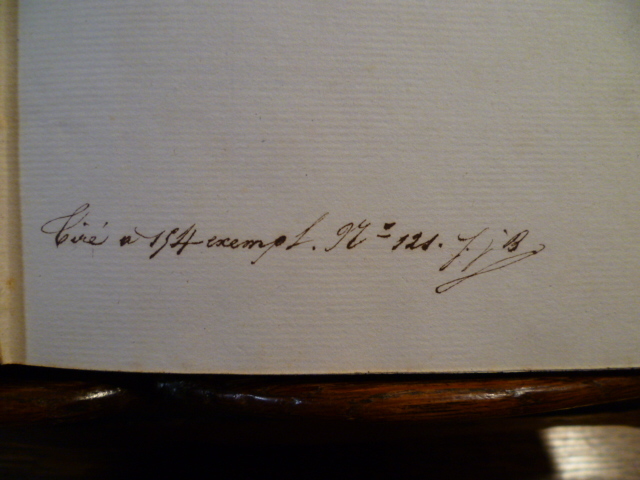 Tiré à 154 exempl. No 121. J. j B